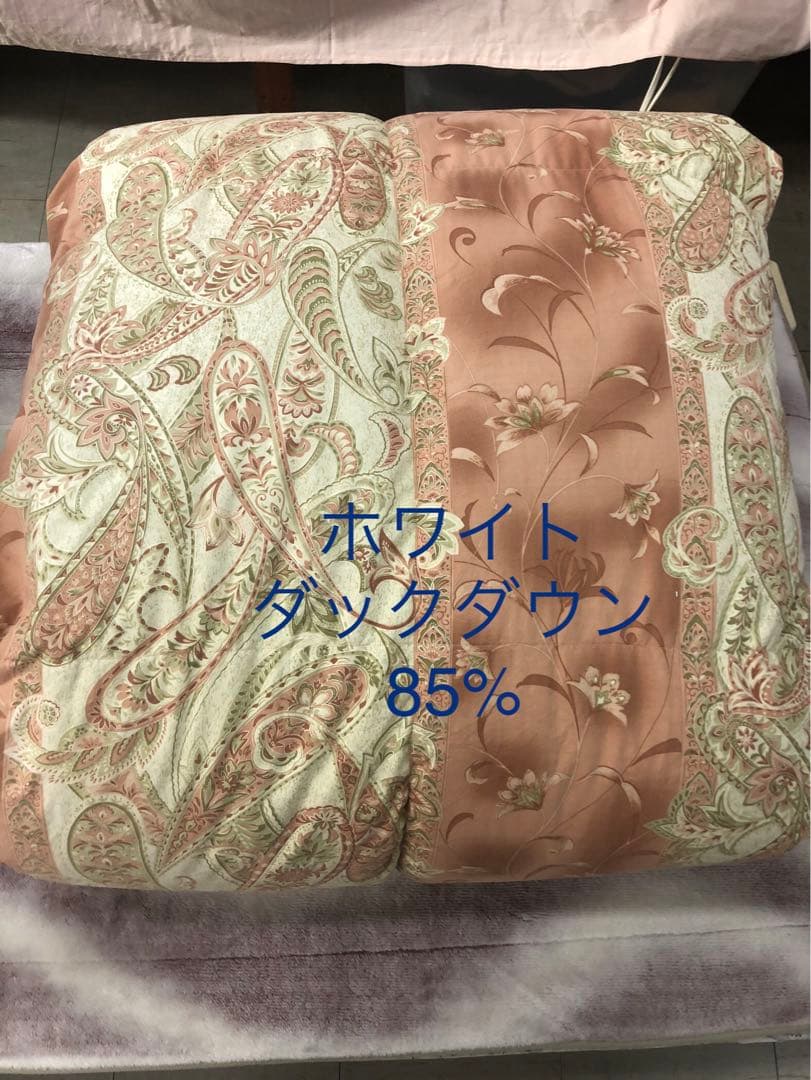 ホワイト
ダックダウン
85%